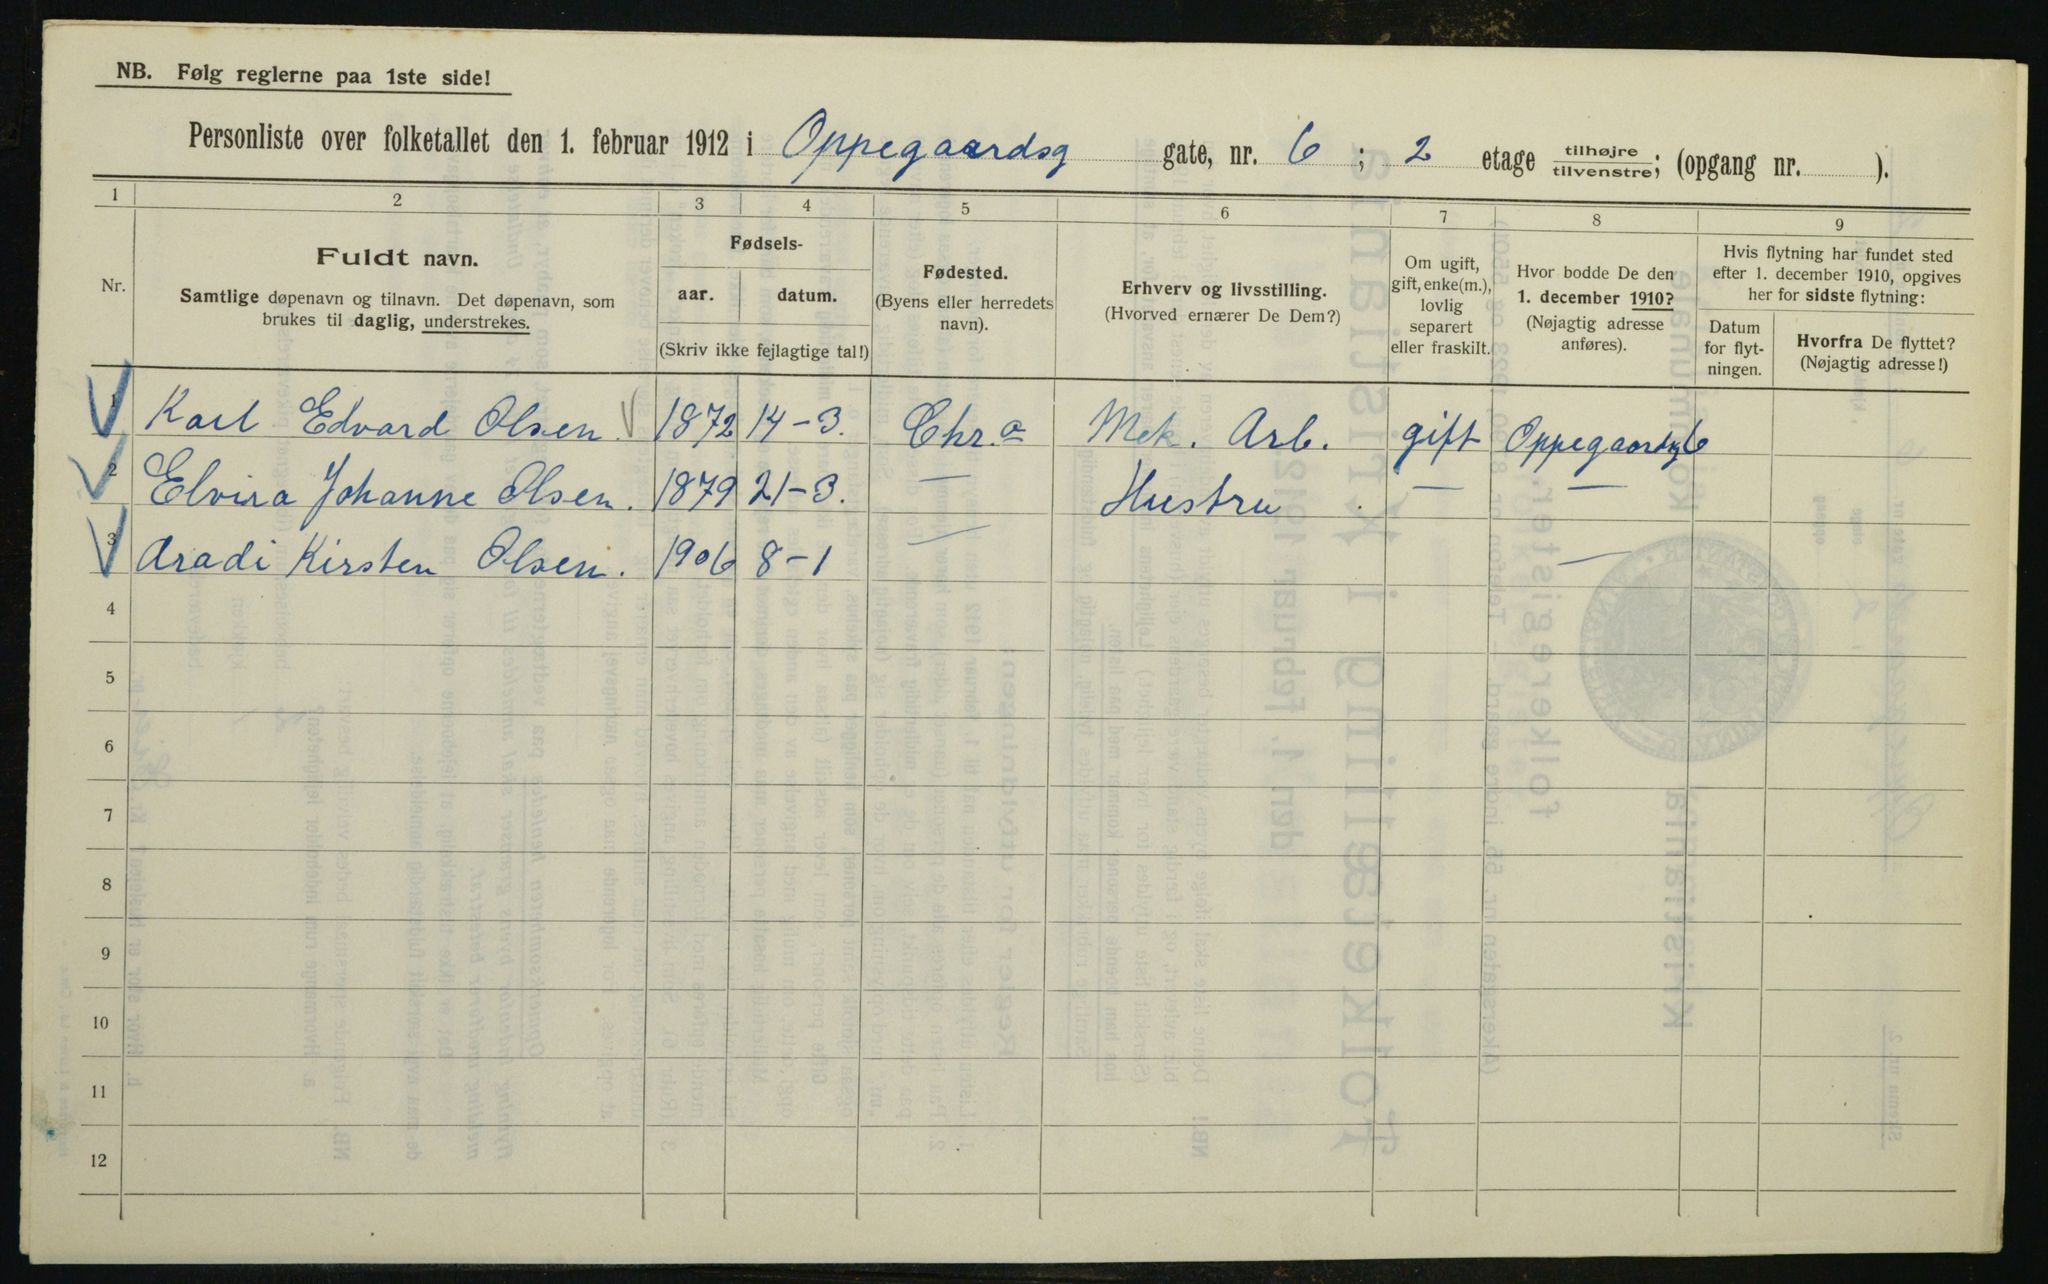 NB. Følg reglerne paa 1ste side!
Personliste over folketallet den 1. februar 1912 i Oppegaardsg gate, nr. 6 ; 2 etage tilhøjre tilvenstre; (opgang nr. ).
1 2 3 4 5 6 7 8 9
Nr.
Fuldt navn.
Samtlige døpenavn og tilnavn. Det døpenavn, som
brukes til daglig, understrekes.
Fødsels-
aar. datum.
(Skriv ikke fejlagtige tal!)
Fødested.
(Byens eller herredets
navn).
Erhverv og livsstilling.
(Hvorved ernærer De Dem?)
Om ugift,
gift, enke(m.),
lovlig
separert
eller fraskilt.
Hvor bodde De den
1. december 1910?
(Nøjagtig adresse
anføres).
Hvis flytning har fundet sted
efter 1. december 1910, opgives
her for sidste flytning:
Datum
for flyt-
ningen.
Hvorfra De flyttet?
(Nøjagtig adresse!)
1 Karl Edvard Olsen. 1872 14-3. Chr.a Mek. Arb. gift Oppegaardsg 6
2 Elvira Johanne Olsen. 1879 21-3. — Hustru — —
3 Aradi Kirsten Olsen. 1906 8-1 — —
4
5
6
7
8
9
10
11
12